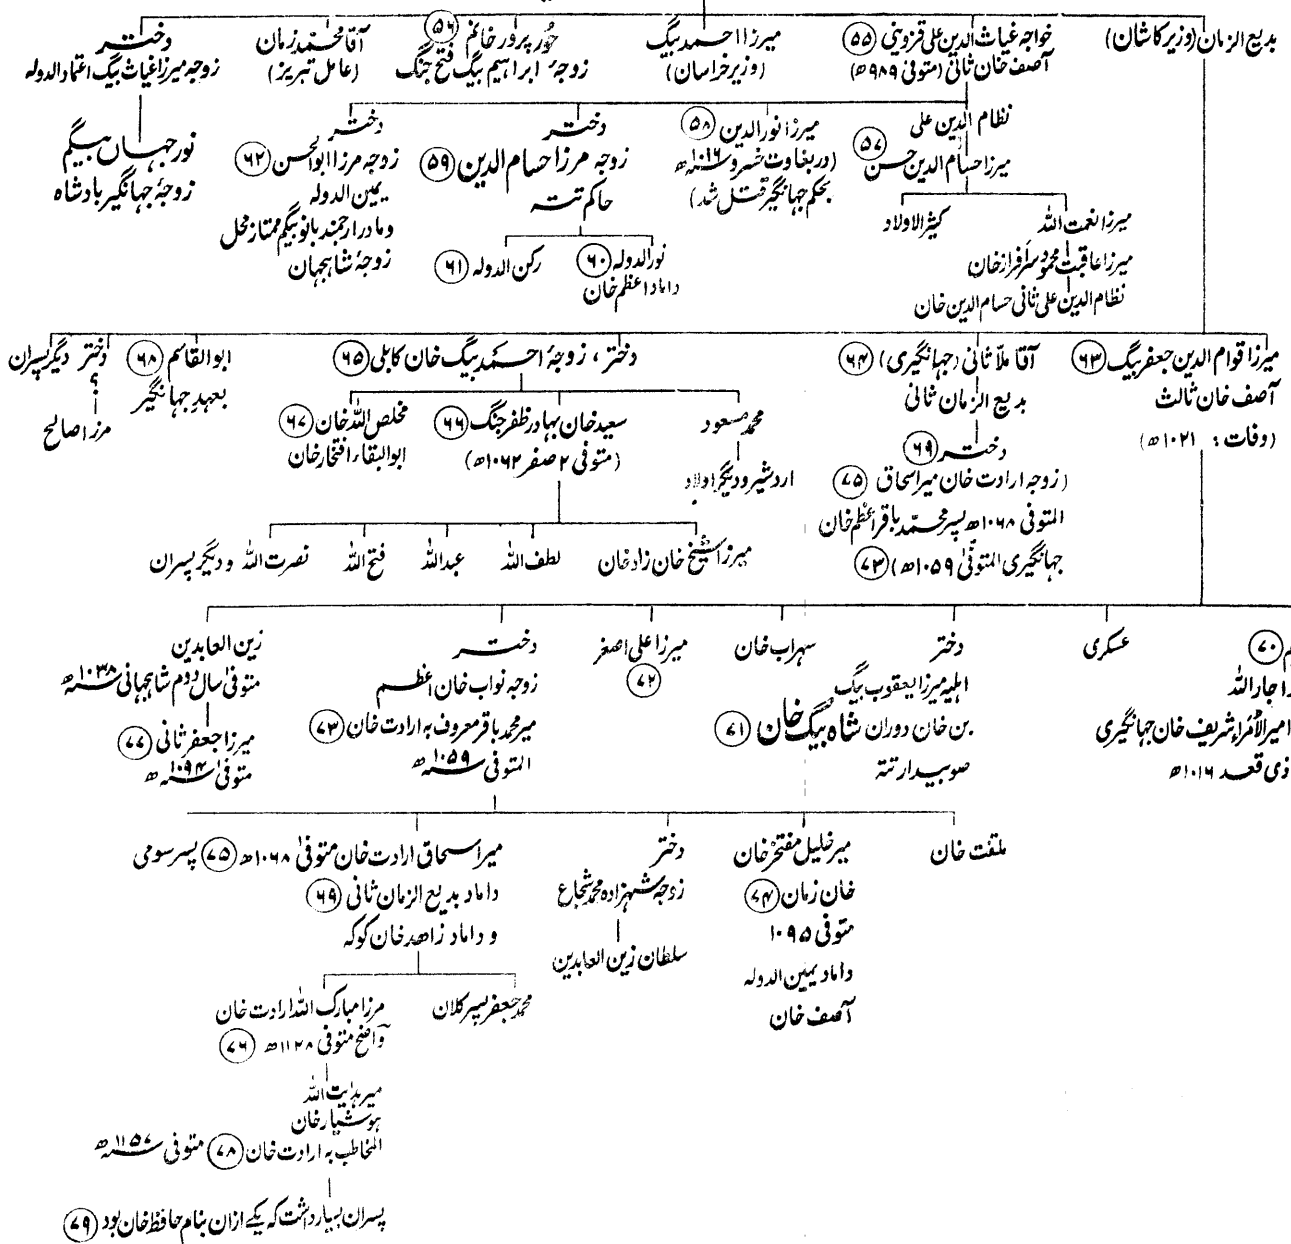 بدیع الزمان (وزیر کاشان)
خواجہ غیاث الدین علی قزوینی (۵۵)
آصف خان ثانی (متوفی ۹۸۹ھ)
میرزا احمد بیگ
(وزیر خراسان)
حور پرور خانم (۵۶)
زوجۂ ابراہیم بیگ فتح جنگ
آقا محمد زمان
(عامل تبریز)
دختر
زوجہ میرزا غیاث بیگ اعتماد الدولہ
نور جہاں بیگم
زوجۂ جہانگیر بادشاہ
نظام الدین علی
میرزا حسام الدین حسن (۵۷)
میرزا نور الدین (۵۸)
(در بغاوت خسرو ۱۰۱۶ھ
بحکم جہانگیر قتل شد)
دختر
زوجہ مرزا حسام الدین (۵۹)
حاکم تتہ
دختر
زوجہ مرزا ابوالحسن (۶۲)
یمین الدولہ
و مادر ارجمند بانو بیگم ممتاز محل
زوجۂ شاہجہان
میرزا نعمت اللہ
کثیر الاولاد
میرزا عاقبت محمود سرفراز خان
نظام الدین علی ثانی حسام الدین خان
نور الدولہ (۶۰)
داماد اعظم خان
رکن الدولہ (۶۱)
میرزا قوام الدین جعفر بیگ (۶۳)
آصف خان ثالث
(وفات: ۱۰۲۱ھ)
آقا ملّا ثانی (جہانگیری) (۶۴)
بدیع الزمان ثانی
دختر (۶۹)
(زوجہ ارادت خان میر اسحاق (۷۵)
المتوفی ۱۰۶۸ھ پسر محمد باقر اعظم خان
جہانگیری المتوفّیٰ ۱۰۵۹ھ) (۷۳)
دختر، زوجۂ احمد بیگ خان کابلی (۶۵)
ابوالقاسم (۶۸)
بعہد جہانگیر
دختر
؟
مرزا صالح
دیگر پسران
محمد مسعود
اردشیر و دیگر اولاد
سعید خان بہادر ظفر جنگ (۶۶)
(متوفی ۲ صفر ۱۰۶۲ھ)
مخلص اللہ خان (۶۷)
ابوالبقاء افتخار خان
میرزا شیخ خان زاد خان
لطف اللہ
عبداللہ
فتح اللہ
نصرت اللہ و دیگر پسران
م (۷۰)
را جار اللہ
امیر الامراء شریف خان جہانگیری
ذی قعد ۱۰۱۶ھ
عسکری
دختر
اہلیہ میرزا یعقوب بیگ
بن خان دوران شاہ بیگ خان (۷۱)
صوبیدار تتہ
سہراب خان
میرزا علی اصغر
(۷۲)
دختر
زوجہ نواب خان اعظم
میر محمد باقر معروف بہ ارادت خان (۷۳)
المتوفیٰ ۱۰۵۹ھ
زین العابدین
متوفیٰ سال دوم شاہجہانی ۱۰۳۸ھ
میرزا جعفر ثانی (۷۷)
متوفیٰ ۱۰۹۴ھ
ملتفت خان
میر خلیل مفتخر خان
خان زمان (۷۴)
متوفی ۱۰۹۵
داماد یمین الدولہ
آصف خان
دختر
زوجہ شہزادہ محمد شجاع
سلطان زین العابدین
میر اسحاق ارادت خان متوفیٰ ۱۰۶۸ھ (۷۵) پسر سومی
داماد بدیع الزمان ثانی (۶۹)
و داماد زاہد خان کوکہ
محمد جعفر پسر کلان
مرزا مبارک اللہ ارادت خان
واضح متوفی ۱۱۲۸ھ (۷۶)
میر ہدایت اللہ
ہوشیار خان
المخاطب بہ ارادت خان (۷۸) متوفی ۱۱۵۷ھ
پسران بسیار داشت کہ یکے ازان بنام حافظ خان بود (۷۹)